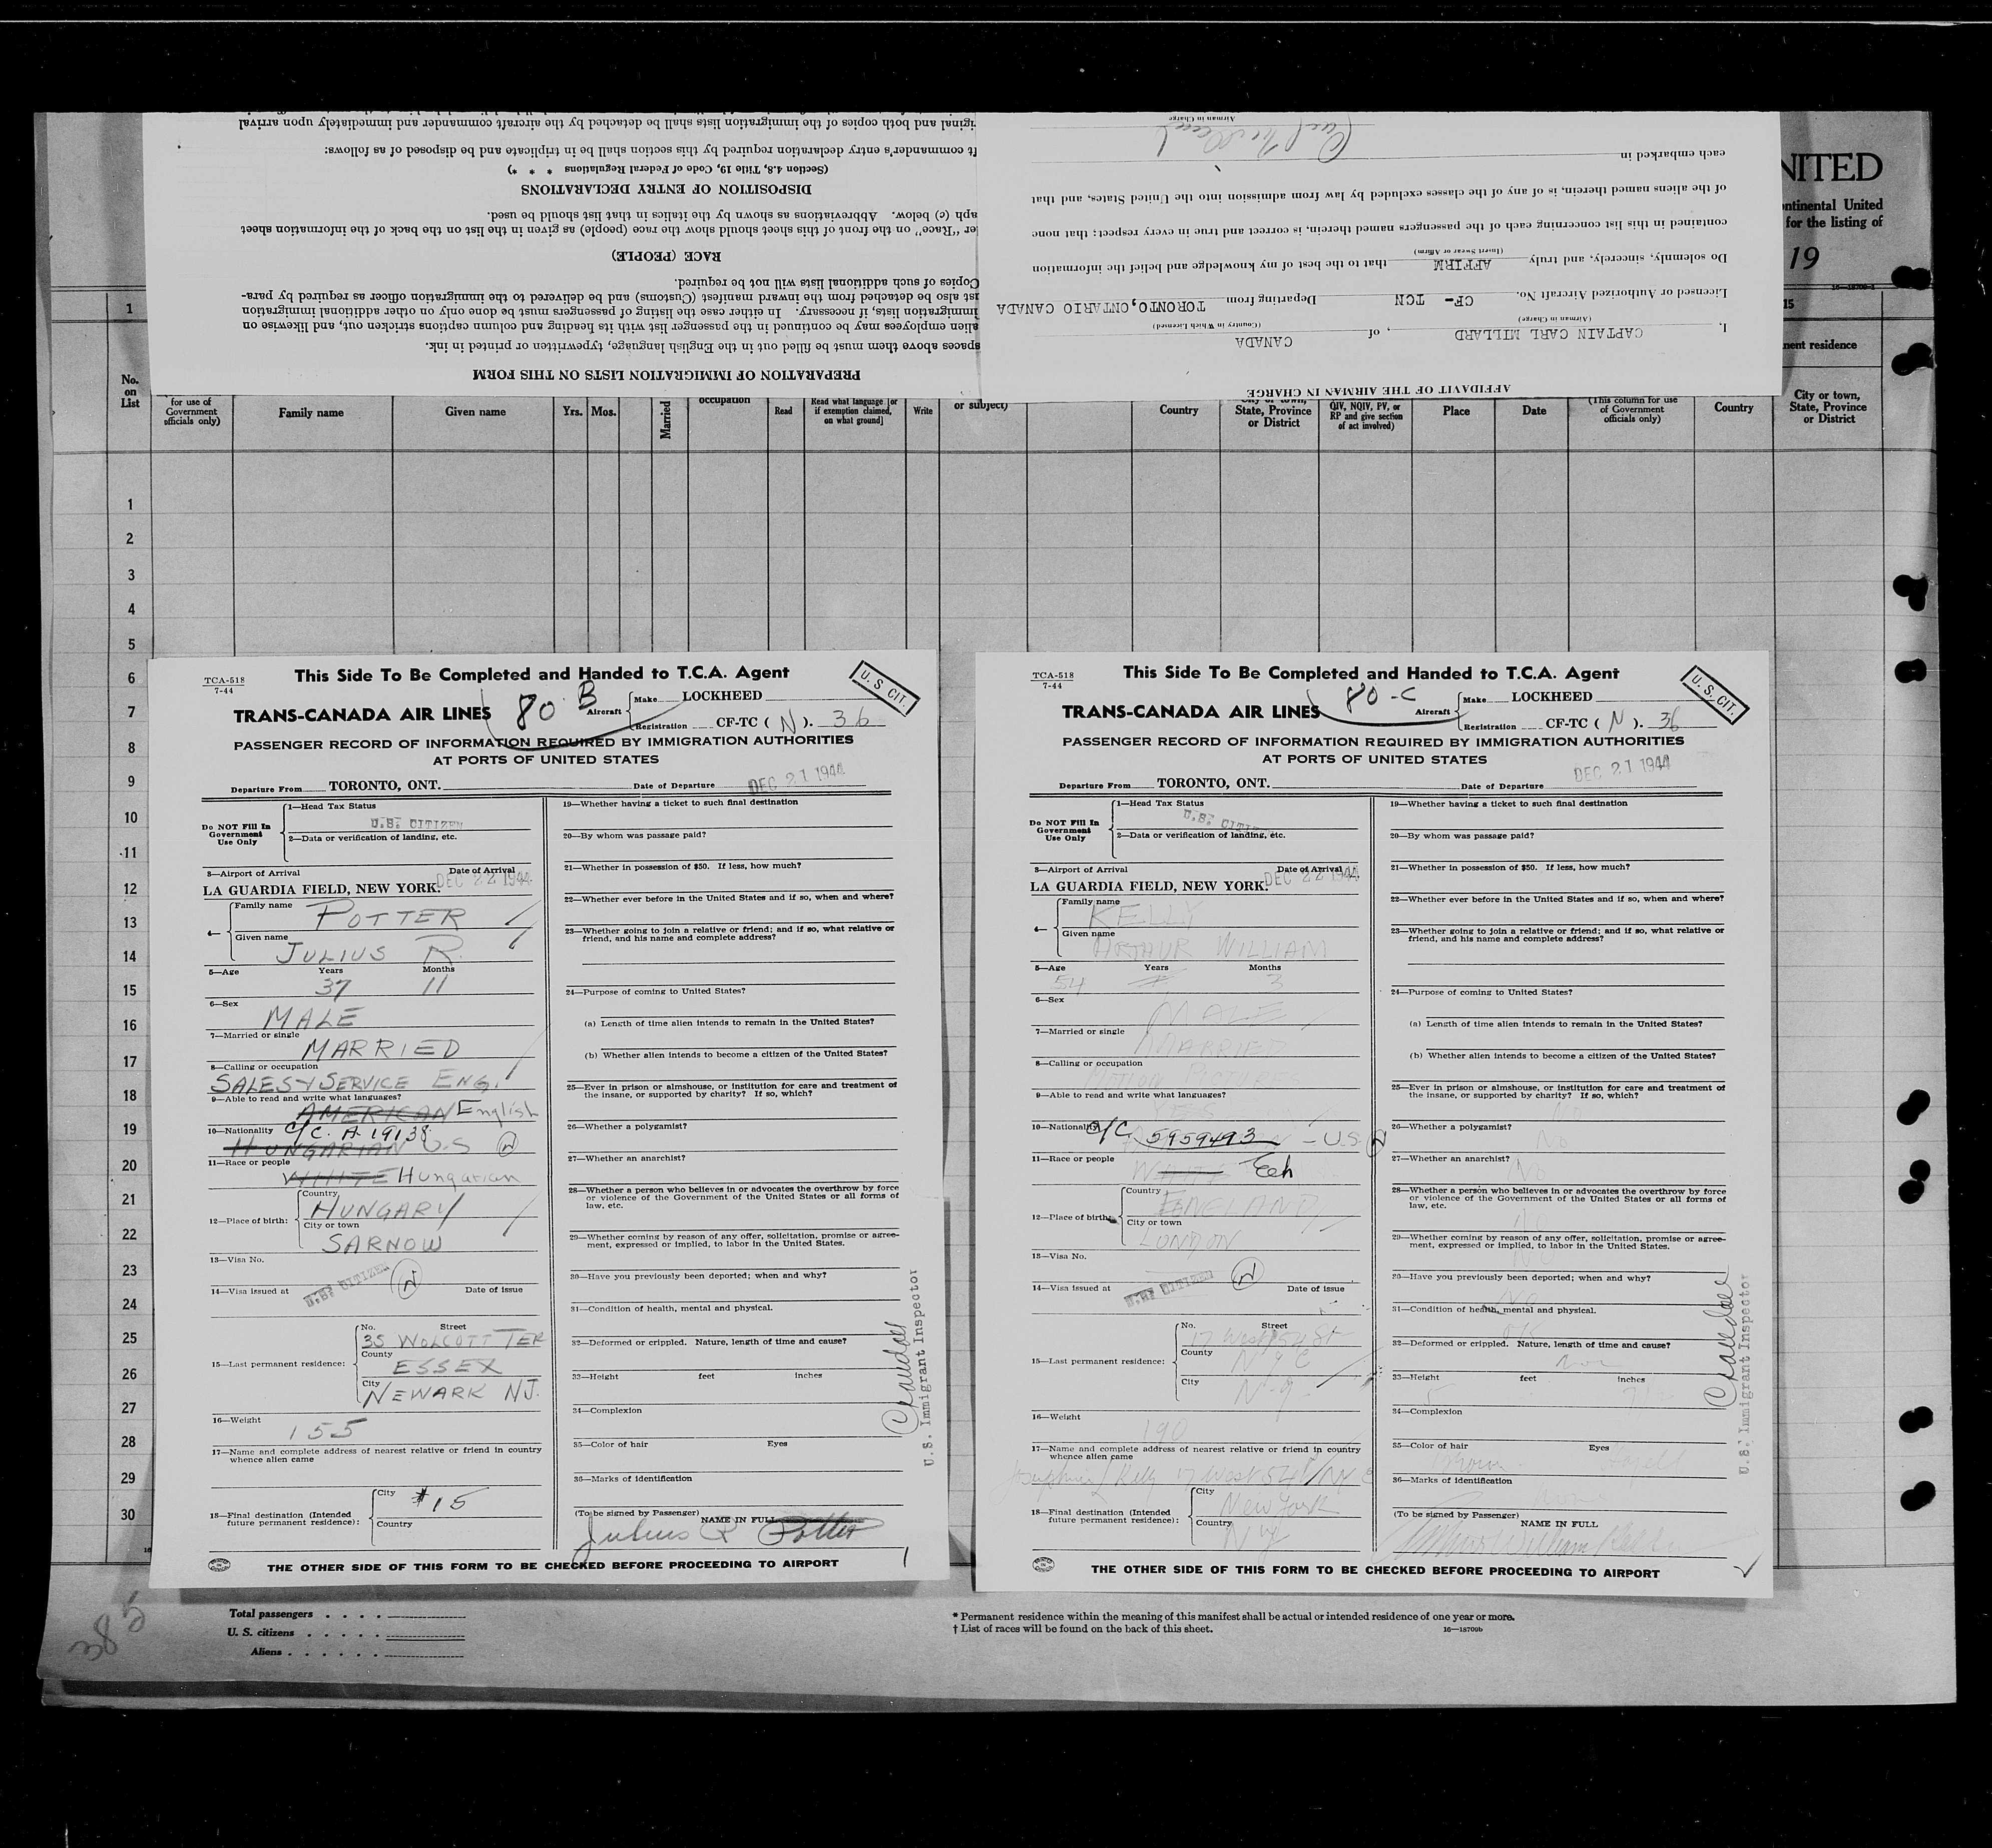 iginal and both copies of the immigration lists shall be detached by the aircraft commander and immediately upon arrival
ft commander's entry declaration required by this section shall be in triplicate and be disposed of as follows:
(Section 4.8, Title 19, Code of Federal Regulations * * *)
DISPOSITION OF ENTRY DECLARATIONS
aph (c) below. Abbreviations as shown by the italics in that list should be used.
er "Race" on the front of this sheet should show the race (people) as given in the list on the back of the information sheet
RACE (PEOPLE)
Copies of such additional lists will not be required.
ust also be detached from the inward manifest (Customs) and be delivered to the immigration officer as required by para-
immigration lists, if necessary. In either case the listing of passengers must be done only on other additional immigration
alien employees may be continued in the passenger list with its heading and column captions stricken out, and likewise on
spaces above them must be filled out in the English language, typewritten or printed in ink.
PREPARATION OF IMMIGRATION LISTS ON THIS FORM
Airman in Charge
each embarked in
of the aliens named therein, is of any of the classes excluded by law from admission into the United States, and that
contained in this list concerning each of the passengers named therein, is correct and true in every respect; that none
(Insert Swear or Affirm)
Do solemnly, sincerely, and truly AFFIRM that to the best of my knowledge and belief the information
Licensed or Authorized Aircraft No. CF- TCN Departing from TORONTO, ONTARIO CANADA
(Airman in Charge) (Country in Which Licensed)
I, CAPTAIN CARL MILLARD, of CANADA
AFFIDAVIT OF THE AIRMAN IN CHARGE
NITED
ntinental United
for the listing of
19
15
nent residence
1
No. on List
for use of Government officials only)
Family name
Given name
Yrs.
Mos.
Married
occupation
Read
Read what language [or if exemption claimed, on what ground]
Write
or subject)
Country
State, Province or District
QIV, NQIV, PV, or RP and give section of act involved)
Place
Date
(This column for use of Government officials only)
Country
City or town, State, Province or District
1
2
3
4
5
6
7
8
9
10
11
12
13
14
15
16
17
18
19
20
21
22
23
24
25
26
27
28
29
30
TCA-518
7-44
This Side To Be Completed and Handed to T.C.A. Agent
U. S. CIT.
80 B
TRANS-CANADA AIR LINES
Aircraft
Make LOCKHEED
Registration CF-TC ( N ). 36
PASSENGER RECORD OF INFORMATION REQUIRED BY IMMIGRATION AUTHORITIES
AT PORTS OF UNITED STATES
Departure From TORONTO, ONT. Date of Departure DEC 21 1944
Do NOT Fill In Government Use Only
1—Head Tax Status
U.S. CITIZEN
2—Data or verification of landing, etc.
3—Airport of Arrival Date of Arrival
LA GUARDIA FIELD, NEW YORK. DEC 22 1944
4—
Family name POTTER
Given name JULIUS R.
5—Age Years Months
37 11
6—Sex
MALE
7—Married or single
MARRIED
8—Calling or occupation
SALES & SERVICE ENG.
9—Able to read and write what languages?
AMERICAN English
10—Nationality C/C. A 19138
HUNGARIAN U.S N
11—Race or people
WHITE Hungarian
12—Place of birth:
Country
HUNGARY
City or town
SARNOW
13—Visa No.
U.S. CITIZEN N
14—Visa issued at Date of issue
15—Last permanent residence:
No. Street
35 WOLCOTT TER
County
ESSEX
City
NEWARK NJ.
16—Weight
155
17—Name and complete address of nearest relative or friend in country whence alien came
18—Final destination (Intended future permanent residence):
City #15
Country
19—Whether having a ticket to such final destination
20—By whom was passage paid?
21—Whether in possession of $50. If less, how much?
22—Whether ever before in the United States and if so, when and where?
23—Whether going to join a relative or friend; and if so, what relative or friend, and his name and complete address?
24—Purpose of coming to United States?
(a) Length of time alien intends to remain in the United States?
(b) Whether alien intends to become a citizen of the United States?
25—Ever in prison or almshouse, or institution for care and treatment of the insane, or supported by charity? If so, which?
26—Whether a polygamist?
27—Whether an anarchist?
28—Whether a person who believes in or advocates the overthrow by force or violence of the Government of the United States or all forms of law, etc.
29—Whether coming by reason of any offer, solicitation, promise or agreement, expressed or implied, to labor in the United States.
30—Have you previously been deported; when and why?
31—Condition of health, mental and physical.
32—Deformed or crippled. Nature, length of time and cause?
33—Height feet inches
34—Complexion
35—Color of hair Eyes
36—Marks of identification
(To be signed by Passenger) NAME IN FULL
Julius R Potter
U.S. Immigrant Inspector
THE OTHER SIDE OF THIS FORM TO BE CHECKED BEFORE PROCEEDING TO AIRPORT
TCA-518
7-44
This Side To Be Completed and Handed to T.C.A. Agent
U. S. CIT.
80-C
TRANS-CANADA AIR LINES
Aircraft
Make LOCKHEED
Registration CF-TC ( N ). 36
PASSENGER RECORD OF INFORMATION REQUIRED BY IMMIGRATION AUTHORITIES
AT PORTS OF UNITED STATES
Departure From TORONTO, ONT. Date of Departure DEC 21 1944
Do NOT Fill In Government Use Only
1—Head Tax Status
U.S. CITIZEN
2—Data or verification of landing, etc.
3—Airport of Arrival Date of Arrival
LA GUARDIA FIELD, NEW YORK. DEC 22 1944
4—
Family name KELLY
Given name ARTHUR WILLIAM
5—Age Years Months
54 3
6—Sex
MALE
7—Married or single
MARRIED
8—Calling or occupation
MOTION PICTURES
9—Able to read and write what languages?
YES
10—Nationality C/C 5959493 - U.S. N
11—Race or people
WHITE
12—Place of birth:
Country
ENGLAND
City or town
LONDON
13—Visa No.
U.S. CITIZEN N
14—Visa issued at Date of issue
15—Last permanent residence:
No. Street
17 West 54 St
County
N Y C
City
N-Y-
16—Weight
190
17—Name and complete address of nearest relative or friend in country whence alien came
Kelly 17 West 54
18—Final destination (Intended future permanent residence):
City New York
Country NY
19—Whether having a ticket to such final destination
20—By whom was passage paid?
21—Whether in possession of $50. If less, how much?
22—Whether ever before in the United States and if so, when and where?
23—Whether going to join a relative or friend; and if so, what relative or friend, and his name and complete address?
24—Purpose of coming to United States?
(a) Length of time alien intends to remain in the United States?
(b) Whether alien intends to become a citizen of the United States?
25—Ever in prison or almshouse, or institution for care and treatment of the insane, or supported by charity? If so, which?
No
26—Whether a polygamist?
No
27—Whether an anarchist?
No
28—Whether a person who believes in or advocates the overthrow by force or violence of the Government of the United States or all forms of law, etc.
No
29—Whether coming by reason of any offer, solicitation, promise or agreement, expressed or implied, to labor in the United States.
No
30—Have you previously been deported; when and why?
No
31—Condition of health, mental and physical.
32—Deformed or crippled. Nature, length of time and cause?
33—Height feet inches
5
34—Complexion
35—Color of hair Eyes
Brown
36—Marks of identification
(To be signed by Passenger) NAME IN FULL
Arthur William Kelly
U.S. Immigrant Inspector
THE OTHER SIDE OF THIS FORM TO BE CHECKED BEFORE PROCEEDING TO AIRPORT
385
Total passengers . . . .
U. S. citizens . . . . .
Aliens . . . . . .
* Permanent residence within the meaning of this manifest shall be actual or intended residence of one year or more.
† List of races will be found on the back of this sheet.
16—18709b